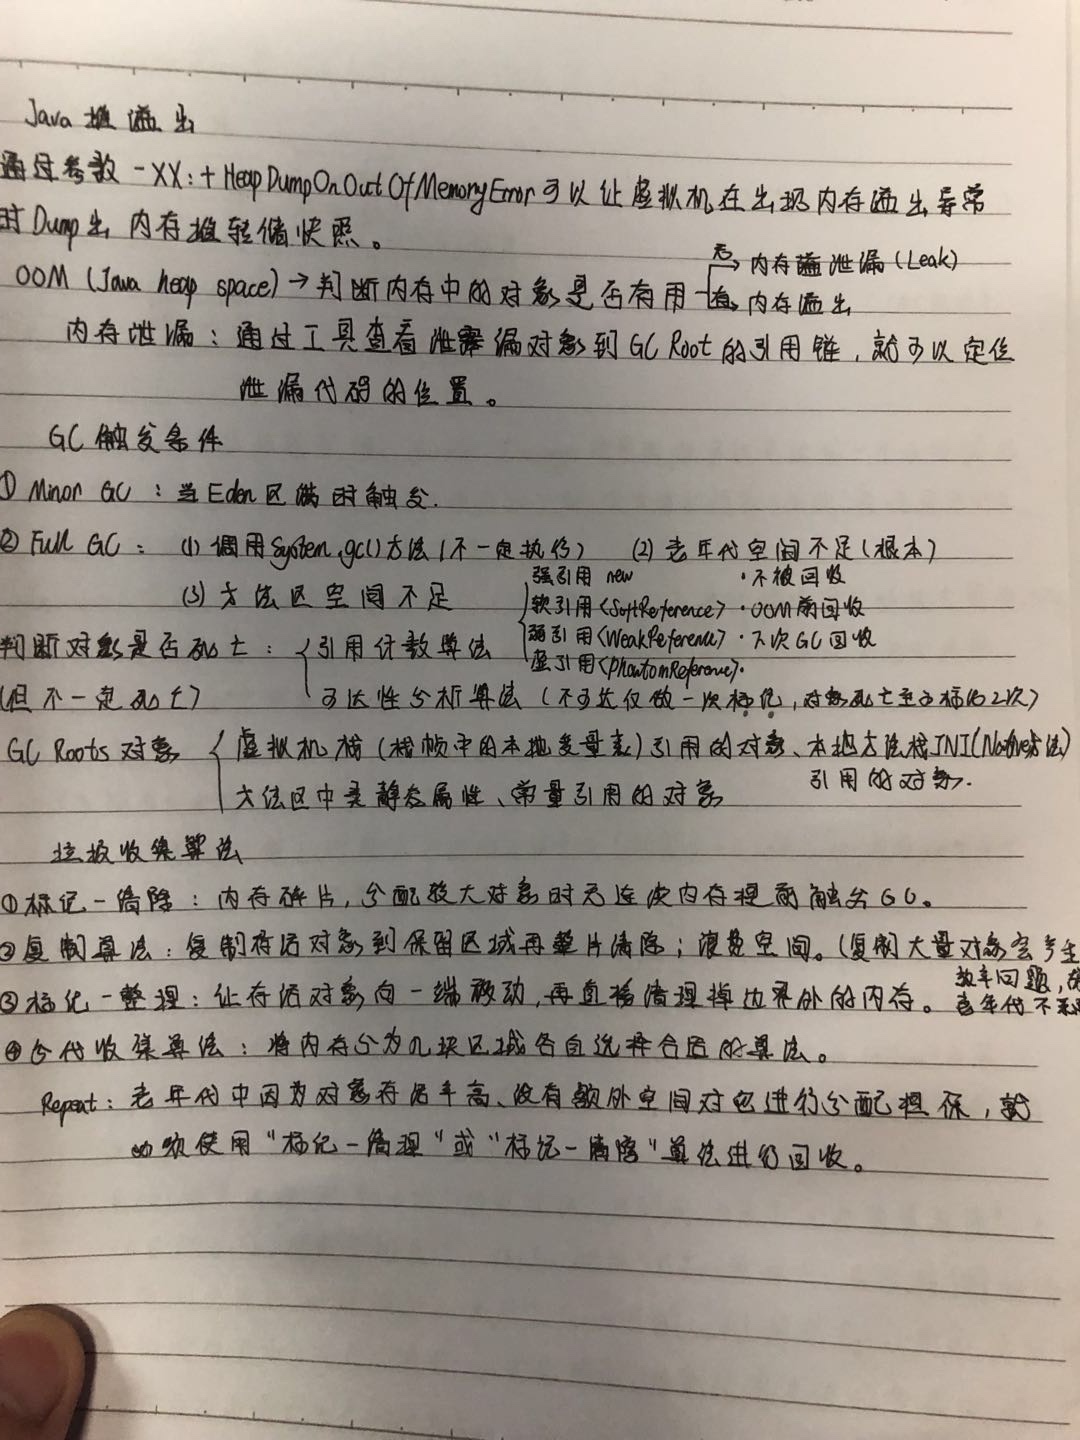 Java堆溢出
通过参数 -XX:+HeapDumpOnOutOfMemoryError可以让虚拟机在出现内存溢出异常
时Dump出内存堆转储快照。
OOM (Java heap space) → 判断内存中的对象是否有用
无→ 内存泄漏(Leak)
有→ 内存溢出
内存泄漏：通过工具查看泄漏对象到GC Root的引用链，就可以定位
泄漏代码的位置。
GC触发条件
① Minor GC：当Eden区满时触发.
② Full GC：(1) 调用System.gc()方法(不一定执行) (2) 老年代空间不足(根本)
(3) 方法区空间不足
强引用 new ·不被回收
软引用<SoftReference> ·OOM前回收
弱引用<WeakReference> ·下次GC回收
虚引用<PhantomReference>.
判断对象是否死亡：引用计数算法
(但不一定死亡) 可达性分析算法(不可达仅做一次标记，对象死亡至少标记2次)
GC Roots对象 虚拟机栈(栈帧中的本地变量表)引用的对象、本地方法栈JNI(Native方法)
引用的对象.
方法区中类静态属性、常量引用的对象
垃圾收集算法
①标记-清除：内存碎片，分配较大对象时无连续内存提前触发GC。
②复制算法：复制存活对象到保留区域再整片清除；浪费空间。(复制大量对象会产生
效率问题，
老年代不
③标记-整理：让存活对象向一端移动，再直接清理掉边界外的内存。
④分代收集算法：将内存分为几块区域各自选择合适的算法。
Repeat：老年代中因为对象存活率高、没有额外空间对它进行分配担保，就
必须使用“标记-清理”或“标记-清除”算法进行回收。